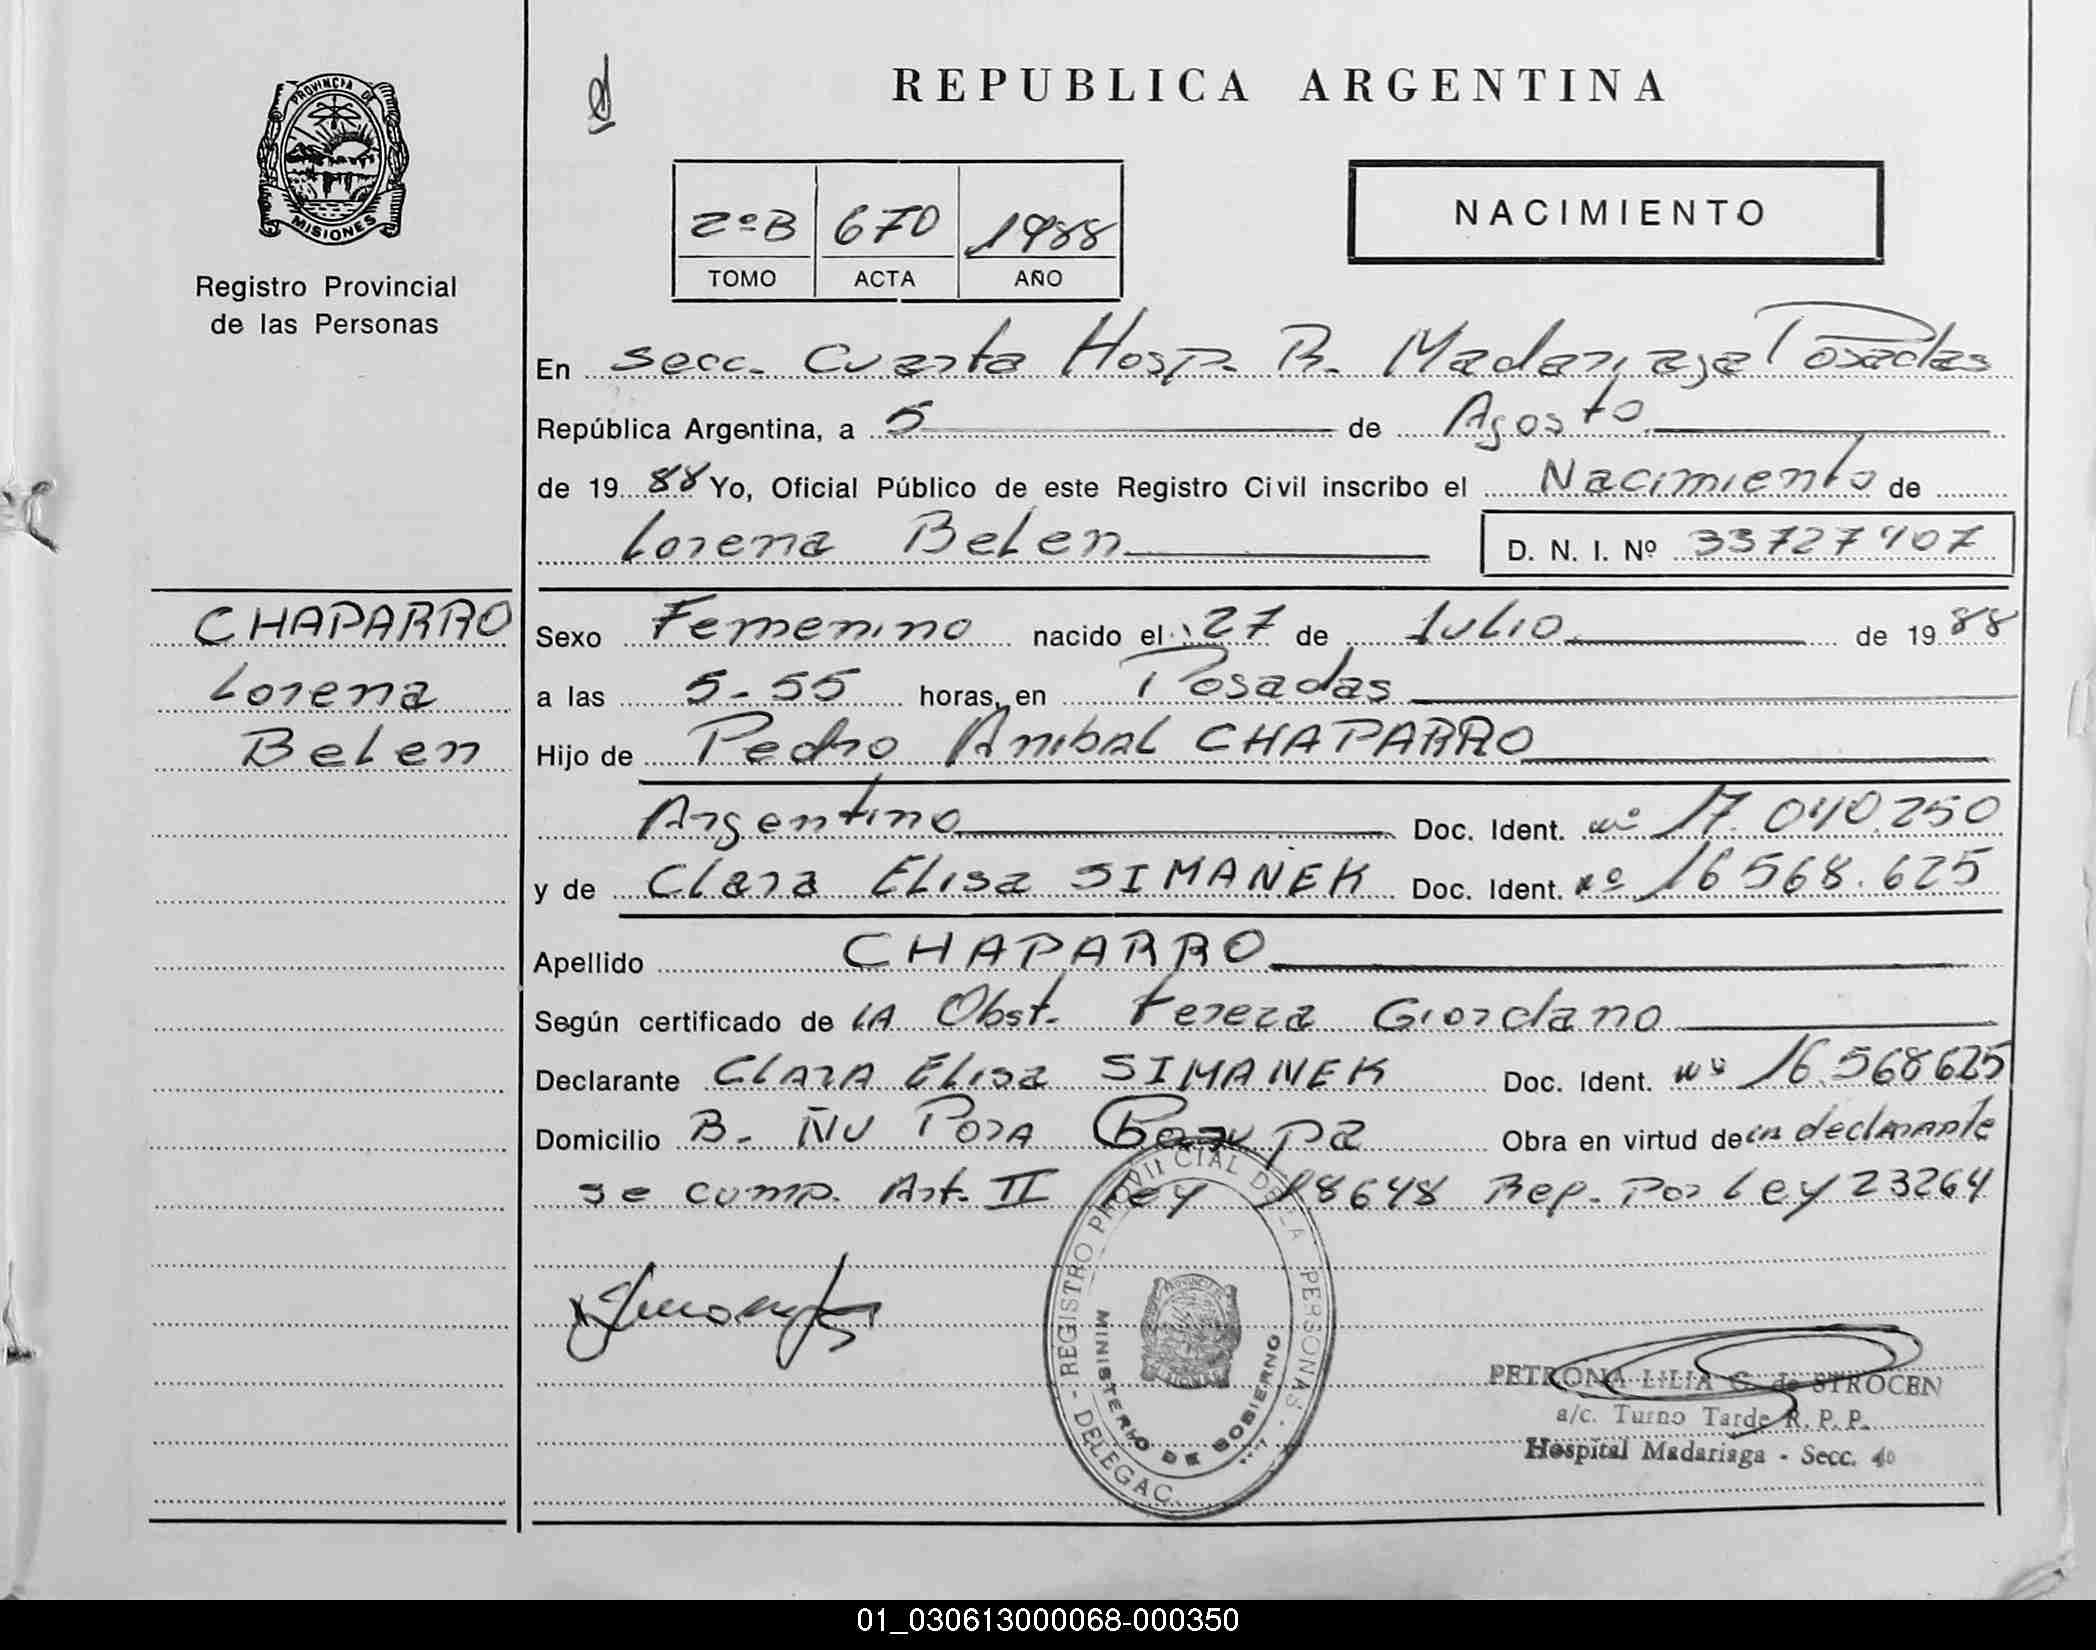 PROVINCIA DE
MISIONES
Registro Provincial
de las Personas
REPUBLICA ARGENTINA
NACIMIENTO
2º B 670 1988
TOMO ACTA AÑO
En secc. Cuarta Hosp. R. Madariaga Posadas
República Argentina, a 5 de Agosto
de 1988 Yo, Oficial Público de este Registro Civil inscribo el Nacimiento de
Lorena Belen D. N. I. Nº 33727407
CHAPARRO
Lorena
Belen
Sexo Femenino nacido el 27 de Julio de 1988
a las 5-55 horas, en Posadas
Hijo de Pedro Anibal CHAPARRO
Argentino Doc. Ident. nº 17.040.250
y de Clara Elisa SIMANEK Doc. Ident. nº 16568.625
Apellido CHAPARRO
Según certificado de LA Obst. Tereza Giordano
Declarante CLARA Elisa SIMANEK Doc. Ident. nº 16.568625
Domicilio B. ÑU PORA Obra en virtud de la declarante
se comp. Art. II Ley 18648 Rep. Por Ley 23264
REGISTRO PROVINCIAL DE LA PERSONAS - DELEGAC
MINISTERIO DE GOBIERNO
PETRONA LILIA G. de STROCEN
a/c. Turno Tarde R. P. P.
Hospital Madariaga - Secc. 4º
01_030613000068-000350